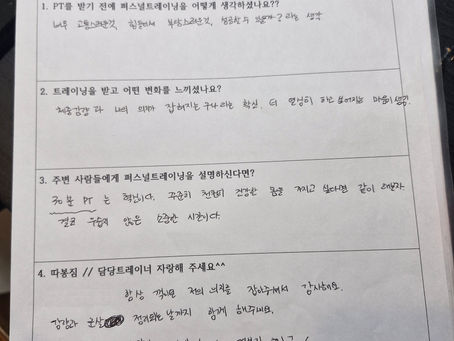 1. PT를 받기 전에 퍼스널트레이닝을 어떻게 생각하셨나요??
너무 고통스러운것, 힘들어서 부담스러운것, 성공할 수 있을까? 라는 생각
2. 트레이닝을 받고 어떤 변화를 느끼셨나요?
체중감량과 나의 의지가 잡혀지는구나 라는 확신. 더 열심히 하고 싶어지는 마음이 생김.
3. 주변 사람들에게 퍼스널트레이닝을 설명하신다면?
30분 PT 는 혁신이다. 꾸준히 천천히 건강한 몸을 가지고 싶다면 같이 해보자.
결코 우습지 않은 소중한 시간이다.
4. 따봉짐 // 담당트레이너 자랑해 주세요^^
항상 꺾이면 저의 의지를 잡아주셔서 감사해요.
강감과 군살 정리되는 날까지 함께 해주세요.